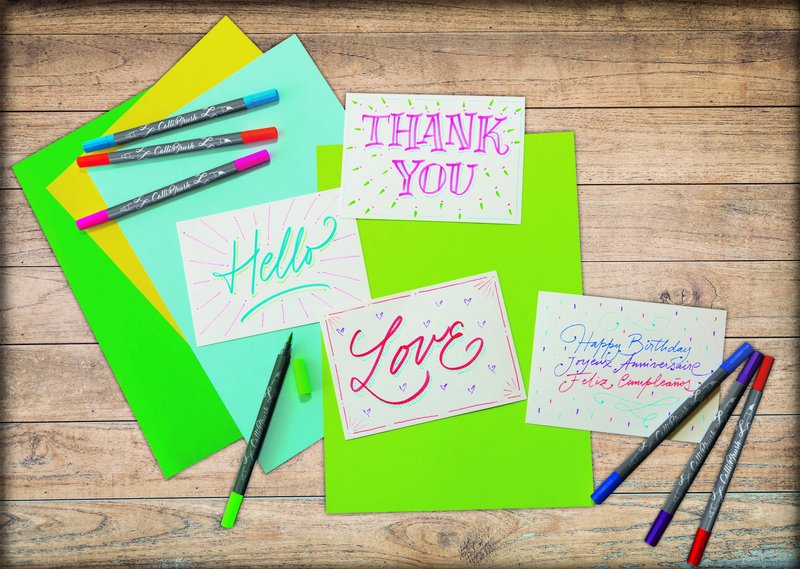 CalliBrush
CalliBrush
CalliBrush
THANK
YOU
Hello
Love
Happy Birthday
Joyeux Anniversaire
Feliz Cumpleaños
CalliBrush
CalliBrush
CalliBrush
CalliBrush